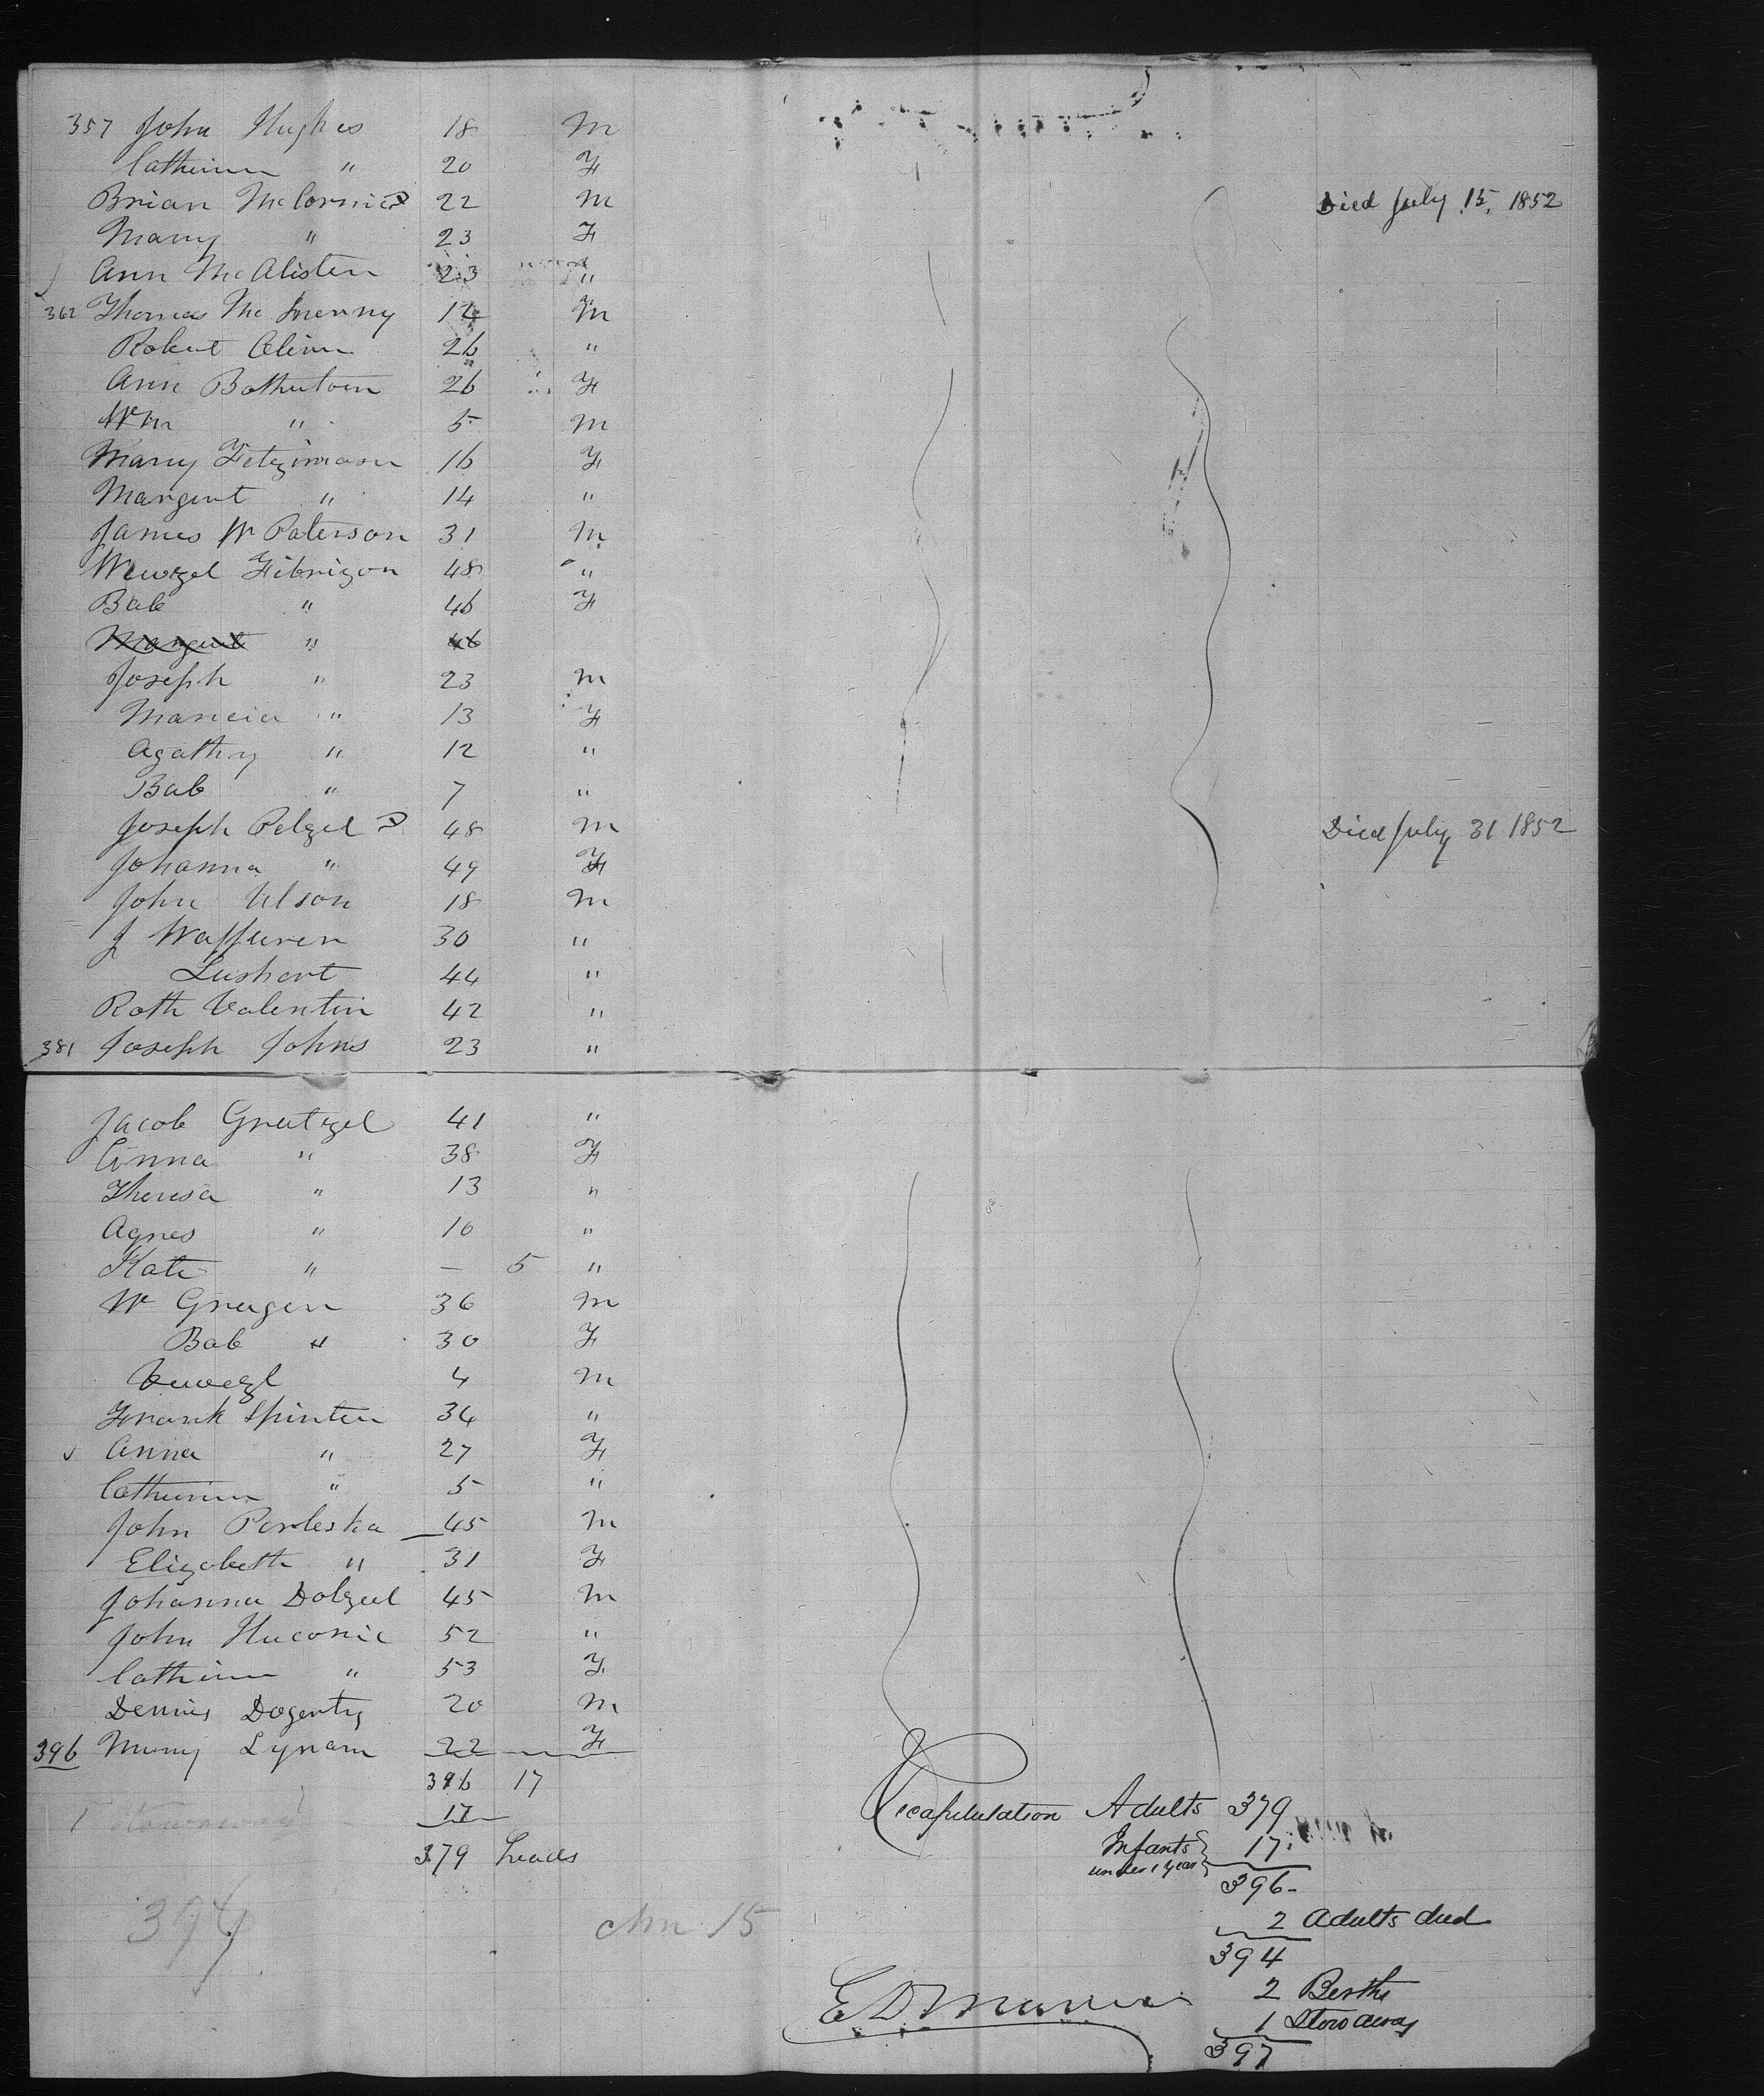 357 John Hughes 18 M
Catherine " 20 F
Brian McCormic D 22 M Died July 15, 1852
Mary " 23 F
Ann McAlister 23 "
362 Thomas Mc Inerny 14 M
Robert 26 "
Ann 26 F
Wm " 5 M
Mary 16 F
Margeret " 14 "
James W Paterson 31 M
Wewzel Fibrigon 48 "
Bab " 46 F
Margeret " 46
Joseph " 23 M
" 13 F
Agathy " 12 "
Bab " 7 "
Joseph Pelzel D 48 M Died July 31 1852
Johanna " 49 F
John Ulson 18 M
J 30 "
Lushort 44 "
Roth Valentin 42 "
381 Joseph Johns 23 "
Jacob Gretzel 41 "
Anna " 38 F
Theresa " 13 "
Agnes " 10 "
Kate " — 5 "
W Greugen 36 M
Bab " 30 F
4 M
Frank Spinter 34 "
Anna " 27 F
Catherine " 5 "
John Porleska 45 M
Elizabeth " 31 F
Johanna Dolzeel 45 M
John Huconic 52 "
Catherine " 53 F
Dennis Dogerty 20 M
396 Mary Lynam 22 F
396 17
17
1 Stowaway
379 heads
394
15
Recapitulation Adults 379
Infants under 1 year } 17
396
2 Adults died
394
2 Berths
1 Stow away
397